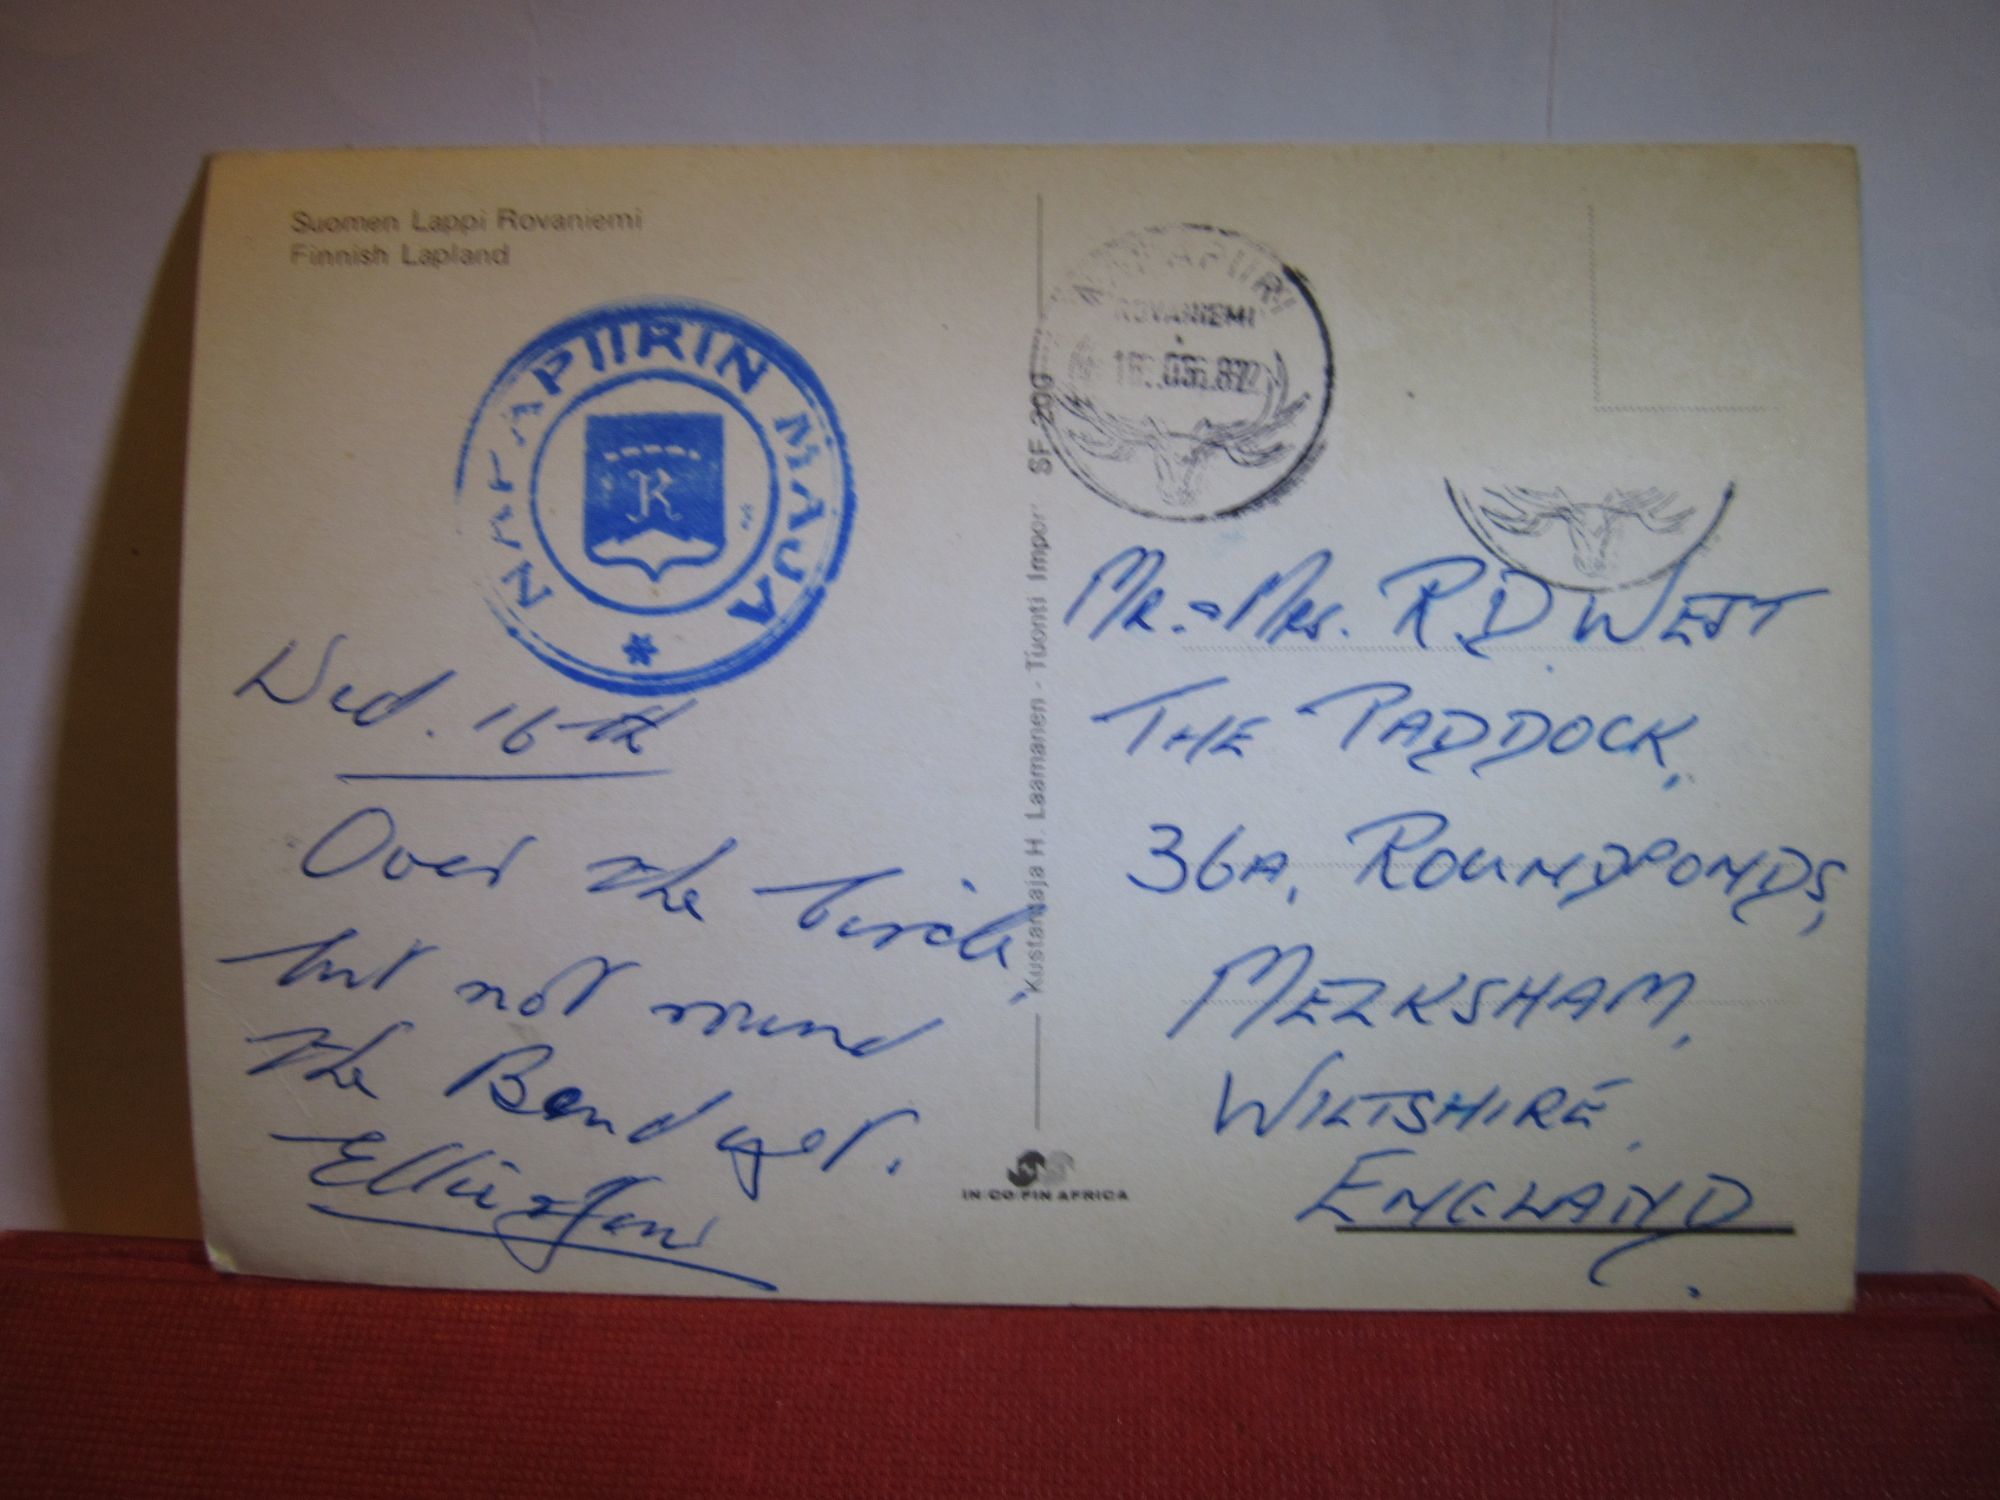 Suomen Lappi Rovaniemi
Finnish Lapland
NAPAPIIRIN MAJA
R
Wed. 16th
Over the Circle,
but not round
the Bend yet.
Ellie
NAPAPIIRI
ROVANIEMI
Kustantaja H. Laamanen - Tuonti Impor. SF 200
MR. MRS. R.D WEST
THE PADDOCK,
36A, ROUNDPONDS,
MELKSHAM,
WILTSHIRE,
ENGLAND.
IN/CO/FIN AFRICA